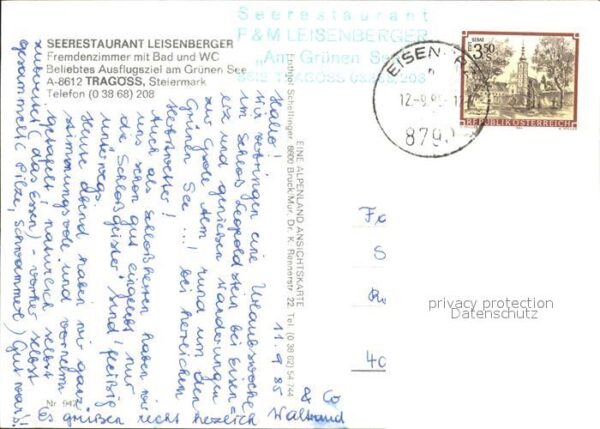 SEERESTAURANT LEISENBERGER
Fremdenzimmer mit Bad und WC
Beliebtes Ausflugsziel am Grünen See
A-8612 TRAGÖSS, Steiermark
Telefon (0 38 68) 208
Seerestaurant
F & M LEISENBERGER
„Am Grünen See
8612 TRAGÖSS 03868/208
EISEN
12.-9.85-1
879
3.50
REPUBLIK ÖSTERREICH
EINE ALPENLAND ANSICHTSKARTE
Schöllinger 8600 Bruck/Mur, Dr. K. Rennerstr. 22, Tel. (0 38 62) 54 7 44
11.9.85
Hallo!
Wir verbringen eine Urlaubswoche
im Schloß Leopoldstein bei Eisen=
erz und genießen Wanderungen
zur Alm, rund um den
Grünen See...! bei herrlichem
Herbstwetter!
Auch als Schloßherren haben wir
uns schon gut eingelebt, nur
die "Schloßgeister" sind fleißig
unterwegs.
Heute abend haben wir ganz
stimmungsvoll und vornehm
getafelt, natürlich selbst
zubereitet (das Essen) - vorher selbst
gesammelt (Pilze, Schwammerl) Gut war's!
Es grüßen recht herzlich Waltraud
& Co
Nr. 947
40
privacy protection
Datenschutz